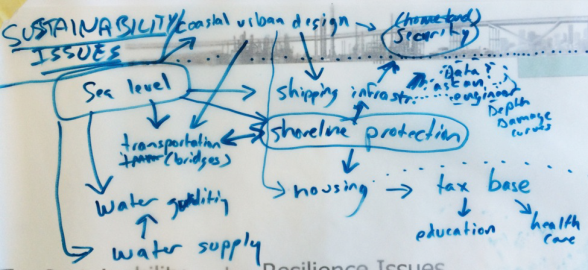 SUSTAINABILITY
ISSUES
coastal urban design
(homeland)
security
Sea level
shipping infrastr.
Data
as can
engineer
Depth
Damage
curves
transportation
(bridges)
shoreline protection
Water
water supply
housing
tax base
education
health
care
Resilience Issues